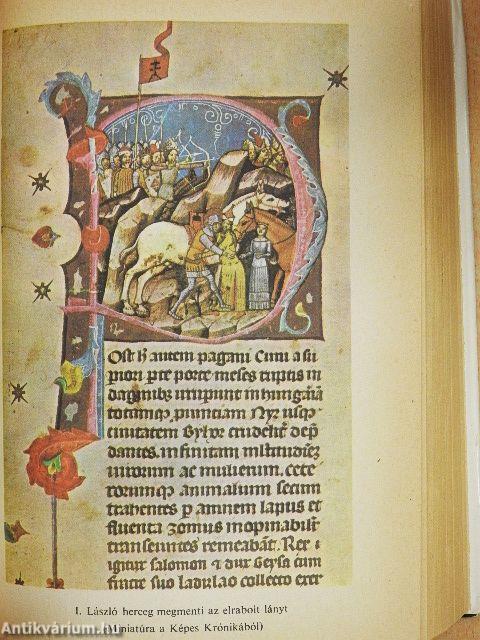 Ost h autem pagani Cuni a su
piori p̄te porte meses ruptis in
daginib; irrupunt in hungariā
totamq; ꝓuinciam Nyr usq;
ciuitatem Byhor crudelit̄ dep̄
dantes. infinitam
uirorum ac mulierum. cete
rorumq; animalium secum
trahentes p amnem lapus et
fluenta zomus inopinabilit̄
transeuntes remeabāt. Rex
igitur salomon & dux Geysa cum
fratre suo ladislao collecto exer
1. László herceg megmenti az elrabolt lányt
(Miniatúra a Képes Krónikából)
Antikvárium.hu